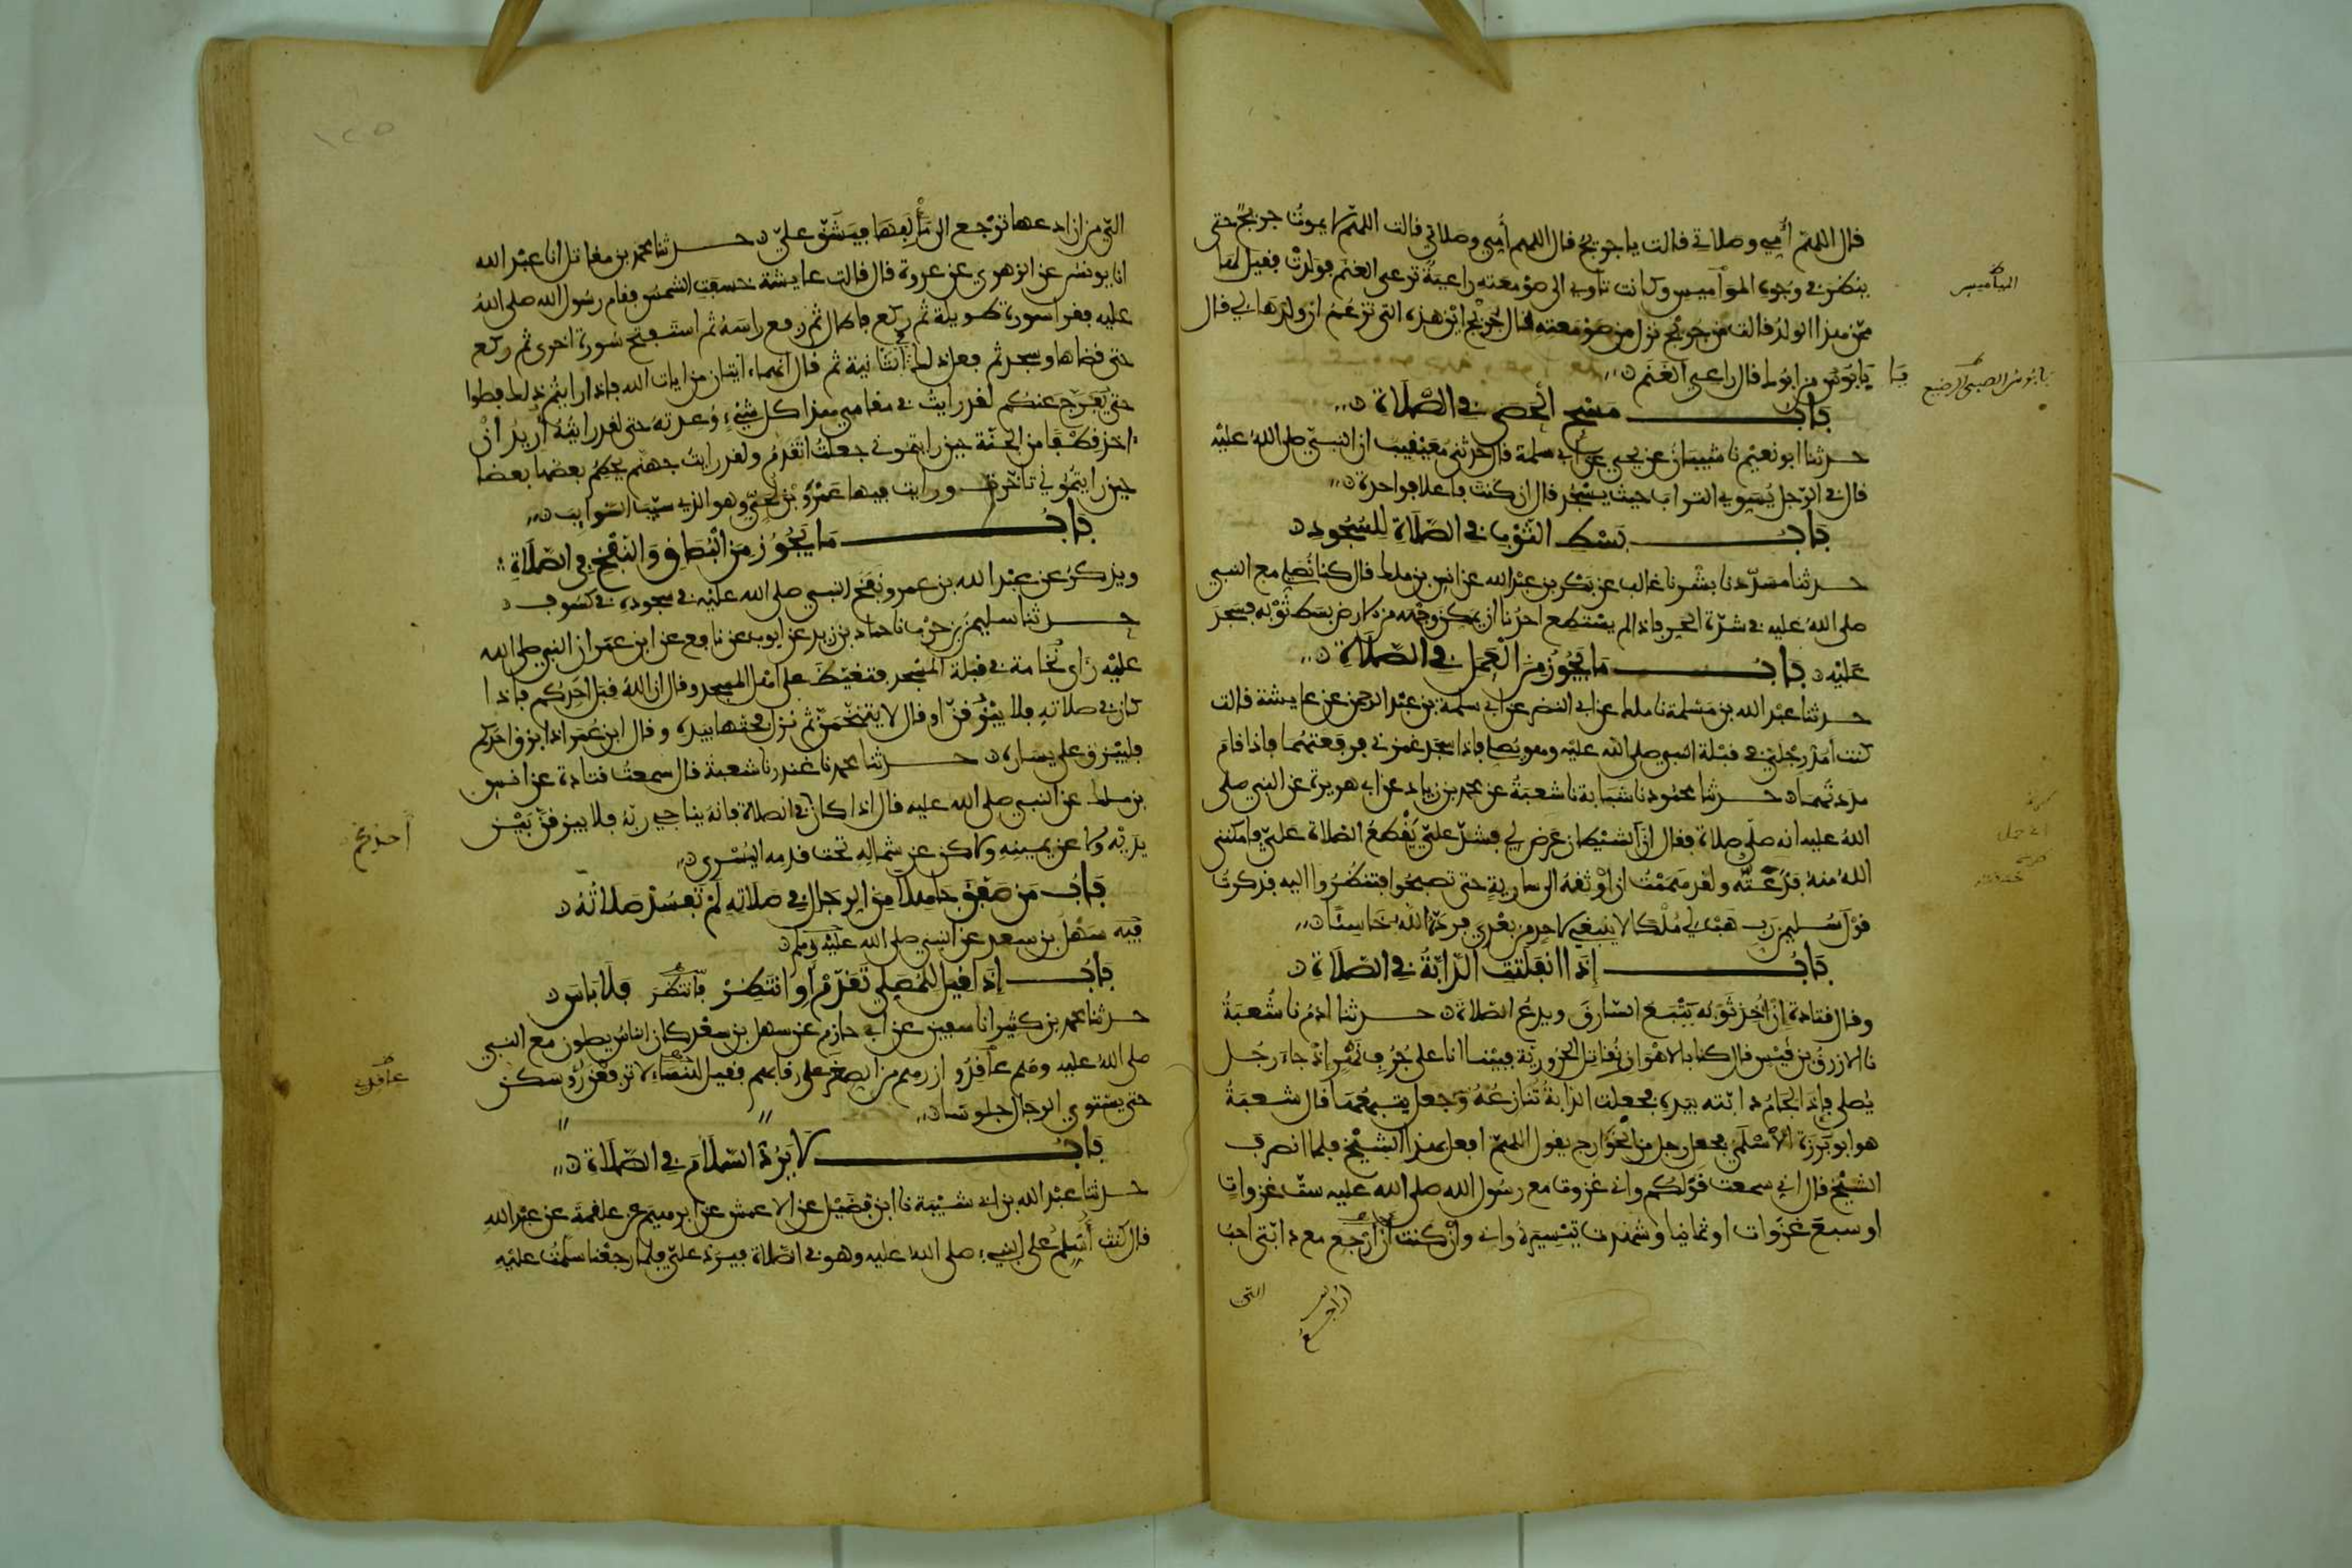 قال اللهم أمي وصلاتي قالت يا جريج قال اللهم أمي وصلاتي قالت اللهم لا يموت جريج حتى
ينظر في وجوه المواميس وكانت تاوي الى صومعته راعية ترعى الغنم فولدت فقيل لها
الميامیس
ممن هذا الولد قالت من جريج نزل من صومعته قال جريج اين هذه التي تزعم ان ولدها لي قال
يا بابوس من ابوك قال راعي الغنم
بابوس الصبي الرضيع
باب مسح الحصى في الصلاة
حدثنا ابو نعيم نا شيبان عن يحيى عن ابي سلمة قال حدثني معيقيب ان النبي صلى الله عليه
قال في الرجل يسوي التراب حيث يسجد قال ان كنت فاعلا فواحدة
باب بسط الثوب في الصلاة للسجود
حدثنا مسدد نا بشر نا غالب عن بكر بن عبد الله عن انس بن ملك قال كنا نصلي مع النبي
صلى الله عليه في شدة الحر فاذا لم يستطع احدنا ان يمكن وجهه من الارض بسط ثوبه فسجد
عليه باب ما يجوز من العمل في الصلاة
حدثنا عبد الله بن مسلمة نا ملك عن ابي النضر عن ابي سلمة بن عبد الرحمن عن عايشة قالت
كنت امد رجلي في قبلة النبي صلى الله عليه وهو يصلي فاذا سجد غمزني فرفعتهما فاذا قام
مددتهما حدثنا محمود نا شبابة نا شعبة عن محمد بن زياد عن ابي هريرة عن النبي صلى
الله عليه انه صلى صلاة فقال ان الشيطان عرض لي فشد علي يقطع الصلاة علي فامكنني
الله منه فذعته ولقد هممت ان اوثقه الى سارية حتى تصبحوا فتنظروا اليه فذكرت
قول سليمن رب هب لي ملكا لا ينبغي لاحد من بعدي فرده الله خاسئا
باب إذا انفلتت الدابة في الصلاة
وقال قتادة إن أخذ ثوبه يتبع السارق ويدع الصلاة حدثنا ادم نا شعبة
نا الازرق بن قيس قال كنا بالاهواز نقاتل الحرورية فبينا انا على جرف نهر إذ جاء رجل
يصلي فإذا لجام دابته بيده فجعلت الدابة تنازعه وجعل يتبعها قال شعبة
هو ابو برزة الأسلمي فجعل رجل من الخوارج يقول اللهم افعل بهذا الشيخ فلما انصرف
الشيخ قال اني سمعت قولكم واني غزوت مع رسول الله صلى الله عليه ست غزوات
او سبع غزوات او ثمانيا وشهدت تيسيره واني وان كنت ان ارجع مع دابتي احب
ان اراجع
التي
١٢٥
الي من ان ادعها ترجع الى مألفها فيشق علي حدثنا محمد بن مقاتل انا عبد الله
انا يونس عن الزهري عن عروة قال قالت عايشة خسفت الشمس فقام رسول الله صلى الله
عليه فقرا سورة طويلة ثم ركع فاطال ثم رفع راسه ثم استفتح سورة اخرى ثم ركع
حتى قضاها وسجد ثم فعل ذلك في الثانية ثم قال انهما ايتان من ايات الله فاذا رايتم ذلك فصلوا
حتى يفرج عنكم لقد رايت في مقامي هذا كل شيء وعدته حتى لقد رايته أريد أن
اخذ قطفا من الجنة حين رايتموني جعلت اتقدم ولقد رايت جهنم يحطم بعضها بعضا
حين رايتموني تاخرت ورايت فيها عمرو بن لحي وهو الذي سيب السوايب
باب ما يجوز من البصاق والنفخ في الصلاة
ويذكر عن عبد الله بن عمرو نفخ النبي صلى الله عليه في سجوده في كسوف
حدثنا سليمن بن حرب نا حماد بن زيد عن ايوب عن نافع عن ابن عمر ان النبي صلى الله
عليه راى نخامة في قبلة المسجد فتغيظ على اهل المسجد وقال ان الله قبل احدكم فاذا
كان في صلاته فلا يبزقن او قال لا يتنخمن ثم نزل فحتها بيده وقال ابن عمر اذا بزق احدكم
فليبزق على يساره حدثنا محمد نا غندر نا شعبة قال سمعت قتادة عن انس
بن ملك عن النبي صلى الله عليه قال اذا كان في الصلاة فانه يناجي ربه فلا يبزقن بين
أحدكم
يديه ولا عن يمينه ولاكن عن شماله تحت قدمه اليسرى
باب من صفق جاهلا من الرجال في صلاته لم تفسد صلاته
فيه سهل بن سعد عن النبي صلى الله عليه وسلم
باب إذا قيل للمصلي تقدم أو انتظر فانتظر فلا باس
حدثنا محمد بن كثير انا سفين عن ابي حازم عن سهل بن سعد كان الناس يصلون مع النبي
صلى الله عليه وهم عاقدو ازرهم من الصغر على رقابهم فقيل للنساء لا ترفعن رؤسكن
عاقدي
حتى يستوي الرجال جلوسا
باب لا يرد السلام في الصلاة
حدثنا عبد الله بن ابي شيبة نا ابن فضيل عن الاعمش عن ابرهيم عن علقمة عن عبد الله
قال كنت أسلم على النبيء صلى الله عليه وهو في الصلاة فيرد علي فلما رجعنا سلمت عليه